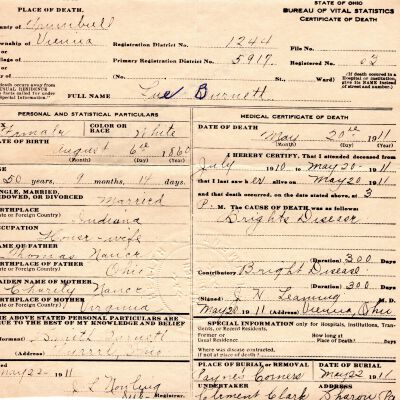 PLACE OF DEATH.
STATE OF OHIO
BUREAU OF VITAL STATISTICS
CERTIFICATE OF DEATH
ounty of Trumbull
ownship of Vienna
Registration District No. 1244
File No.
illage of
Primary Registration District No. 5917
Registered No. 02
ity of
(No.
St.,
Ward)
(If death occured in a Hospital or institution, give its NAME instead of street and number.)
If death occurs away from USUAL RESIDENCE give facts called for under "Special Information."
FULL NAME
Burnett
PERSONAL AND STATISTICAL PARTICULARS
MEDICAL CERTIFICATE OF DEATH
COLOR OR RACE White
DATE OF DEATH
May 20 1911
(Month) (Day) (Year)
DATE OF BIRTH
August 6 1860
(Month) (Day) (Year)
I HEREBY CERTIFY, That I attended deceased from
July 1910 to May 20 1911
50 years, 9 months, 14 days.
that I last saw her alive on May 20 1911
and that death occurred, on the date stated above, at 3
P. M. The CAUSE OF DEATH was as follows:
Brights Disease
SINGLE, MARRIED, WIDOWED, OR DIVORCED Married
BIRTHPLACE (State or Foreign Country) Indiana
OCCUPATION House-wife
(Duration) 300 Days
NAME OF FATHER Thomas Nance
BIRTHPLACE OF FATHER (State or Foreign Country) Ohio
Contributory Bright Disease
(Duration) 300 Days
MAIDEN NAME OF MOTHER Charity Nance
(Signed) J H Leaming M. D.
BIRTHPLACE OF MOTHER (State or Foreign Country)
May 20 1911 (Address) Vienna, Ohio
THE ABOVE STATED PERSONAL PARTICULARS ARE TRUE TO THE BEST OF MY KNOWLEDGE AND BELIEF
SPECIAL INFORMATION only for Hospitals, Institutions, Transients, or Recent Residents.
(Informant) Burnett
Former or Usual Residence
How long at Place of Death?
Days
(Address)
Where was disease contracted, if not at place of death?
May 22 1911
PLACE OF BURIAL OR REMOVAL
DATE OF BURIAL
Paynes Corners
May 22 1911
UNDERTAKER
ADDRESS
Clement Clark
Sharon Pa